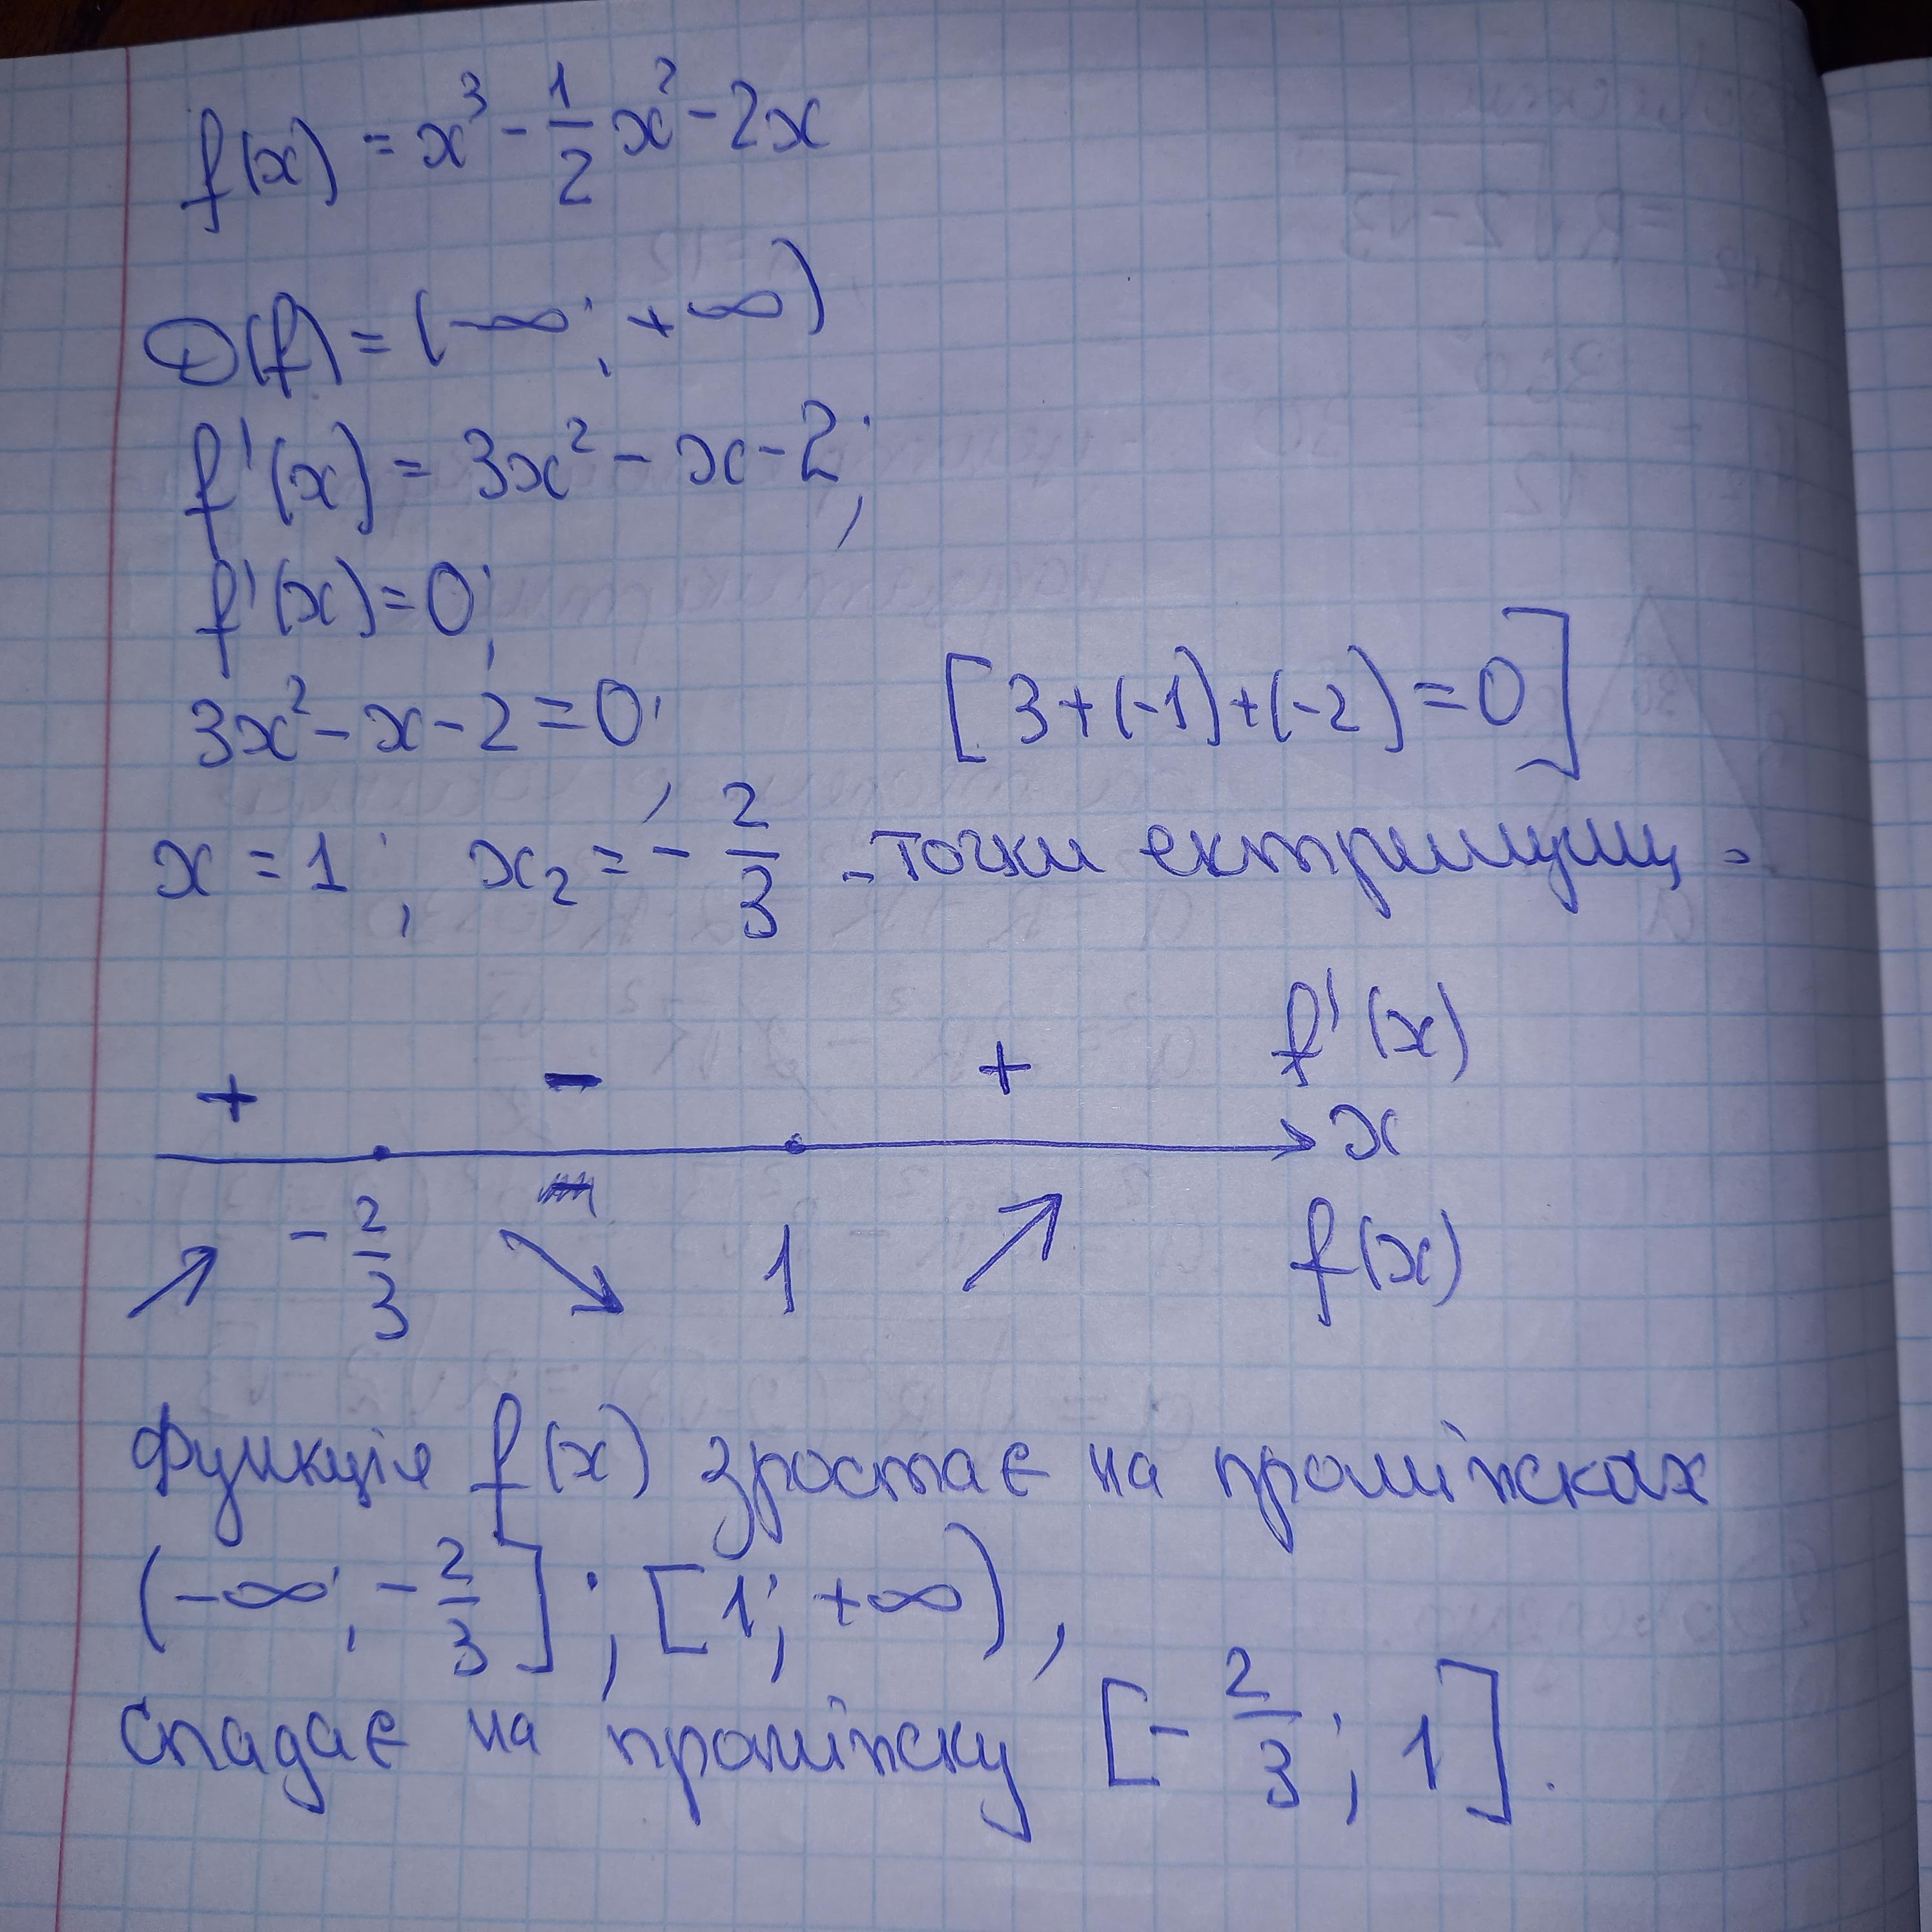 f(x) = x³ - 1/2 x² - 2x
D(f) = (-∞; +∞)
f'(x) = 3x² - x - 2;
f'(x) = 0;
3x² - x - 2 = 0; [3+(-1)+(-2)=0]
x = 1; x₂ = - 2/3 - точки
+ - + f'(x)
x
↗ - 2/3 ↘ 1 ↗ f(x)
Функція f(x) зростає на проміжках
(-∞; - 2/3]; [1; +∞),
спадає на проміжку [- 2/3; 1].